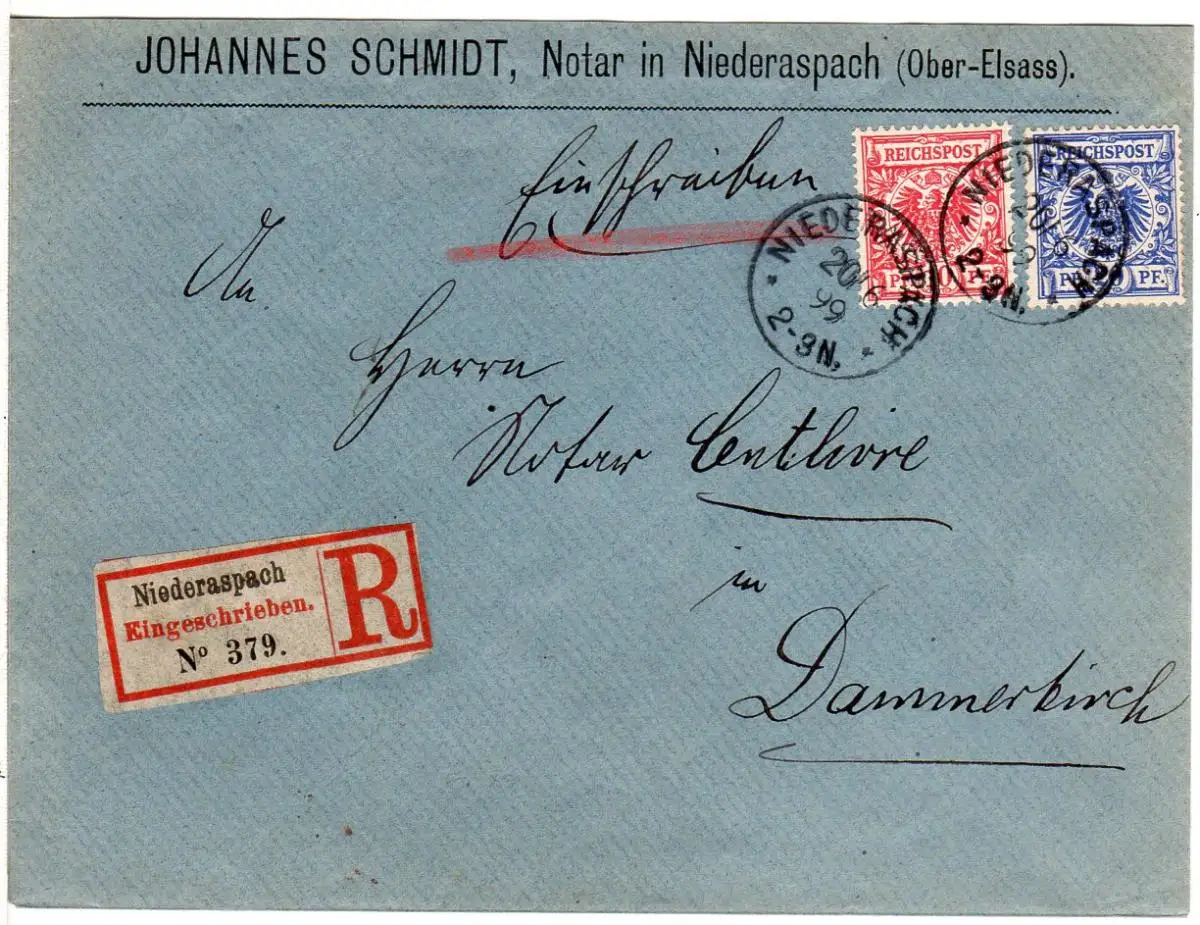 JOHANNES SCHMIDT, Notar in Niederaspach (Ober-Elsass).
Einschreiben
REICHSPOST
REICHSPOST
PF.
PF.
* NIEDERASPACH *
20/6
99
2-3N.
* NIEDERASPACH *
2-3N.
An
Herrn
Notar Centlivre
in
Dammerkirch
Niederaspach
Eingeschrieben.
Nº 379.
R